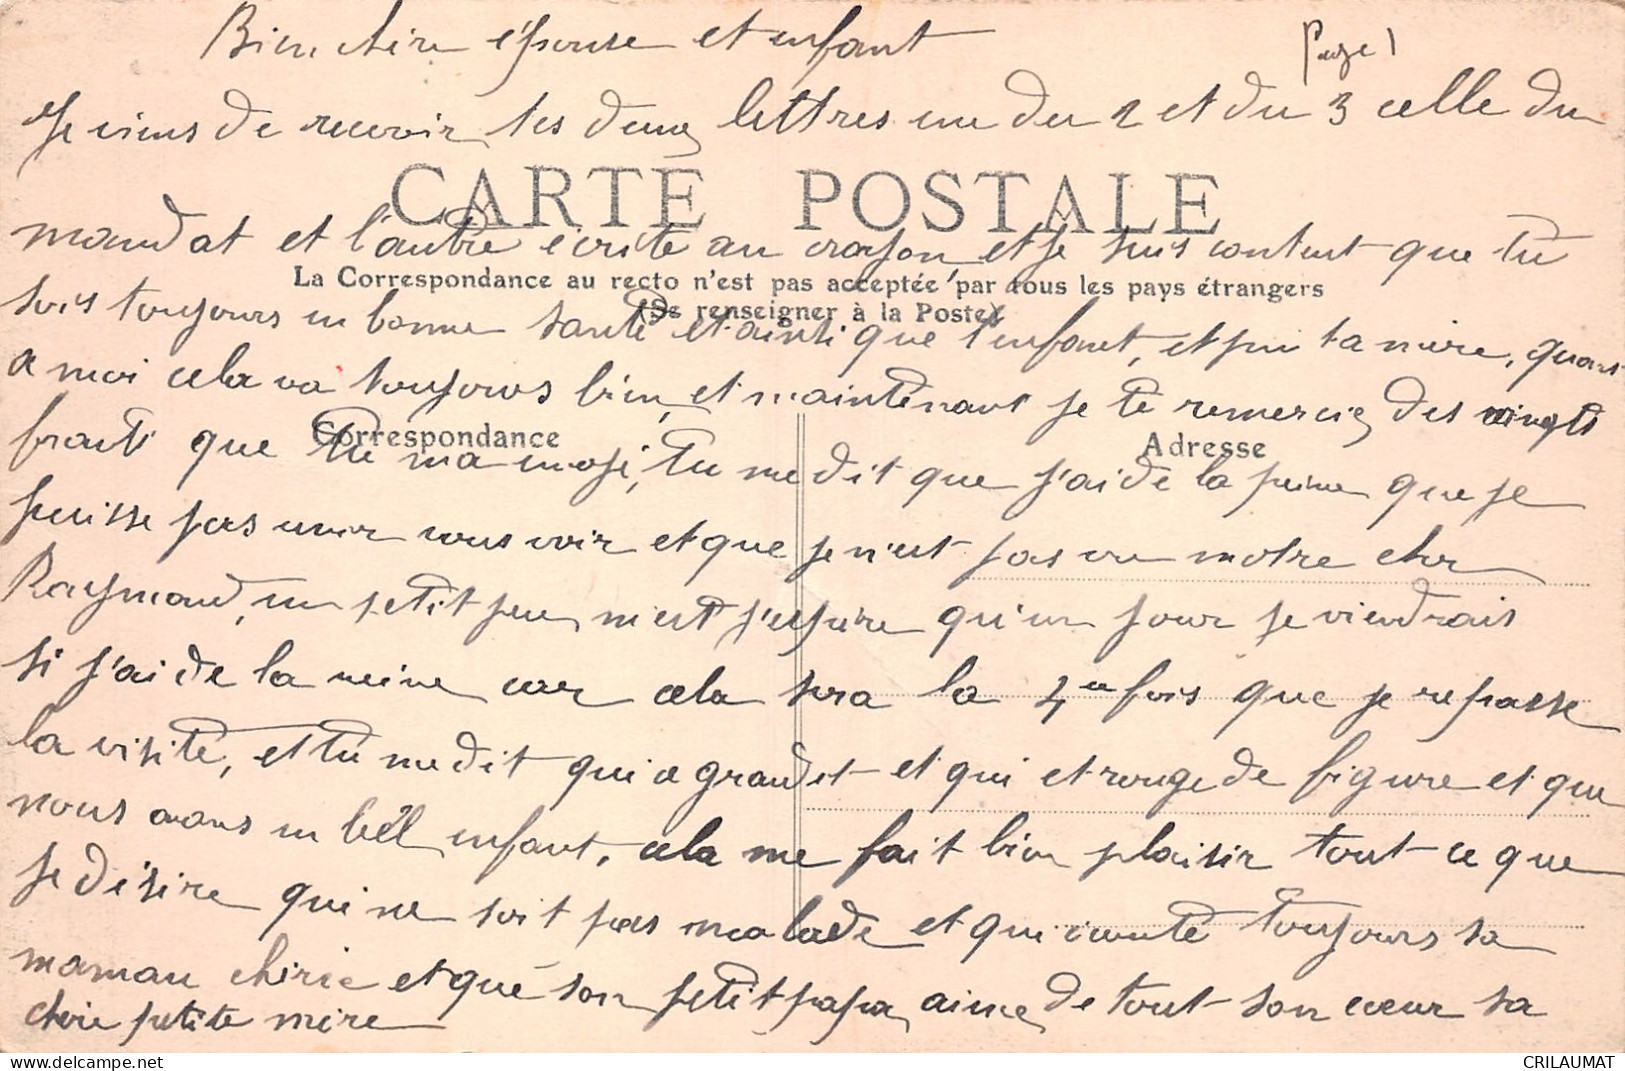 Bien chère épouse et enfant
Page 1
Je viens de recevoir tes deux lettres une du 2 et du 3 celle du
CARTE POSTALE
mandat et l'autre écrite au crayon et je suis content que tu
La Correspondance au recto n'est pas acceptée par tous les pays étrangers
(Se renseigner à la Poste)
sois toujours en bonne santé et ainsi que l'enfant, et puis ta mère, quant
a moi cela va toujours bien, et maintenant je te remercie des vingts
Correspondance
Adresse
franti que tu ma envoji, tu me dit que j'ai de la peine que je
puisse pas venir vous voir et que je n'est pas vu notre cher
Raymond, un petit peu, m'est j'espère qu'un jour je viendrais
si j'ai de la veine car cela sera la 4me fois que je repasse
la visite, et tu me dit qui a grandet et qui et rouge de figure et que
nous avons un bêl enfant, cela me fait bien plaisir tout ce que
je désire qui ne soit pas malade et qui écoute toujours sa
maman chérie et que son petit papa, aime de tout son cœur sa
chère petite mère
CRILAUMAT